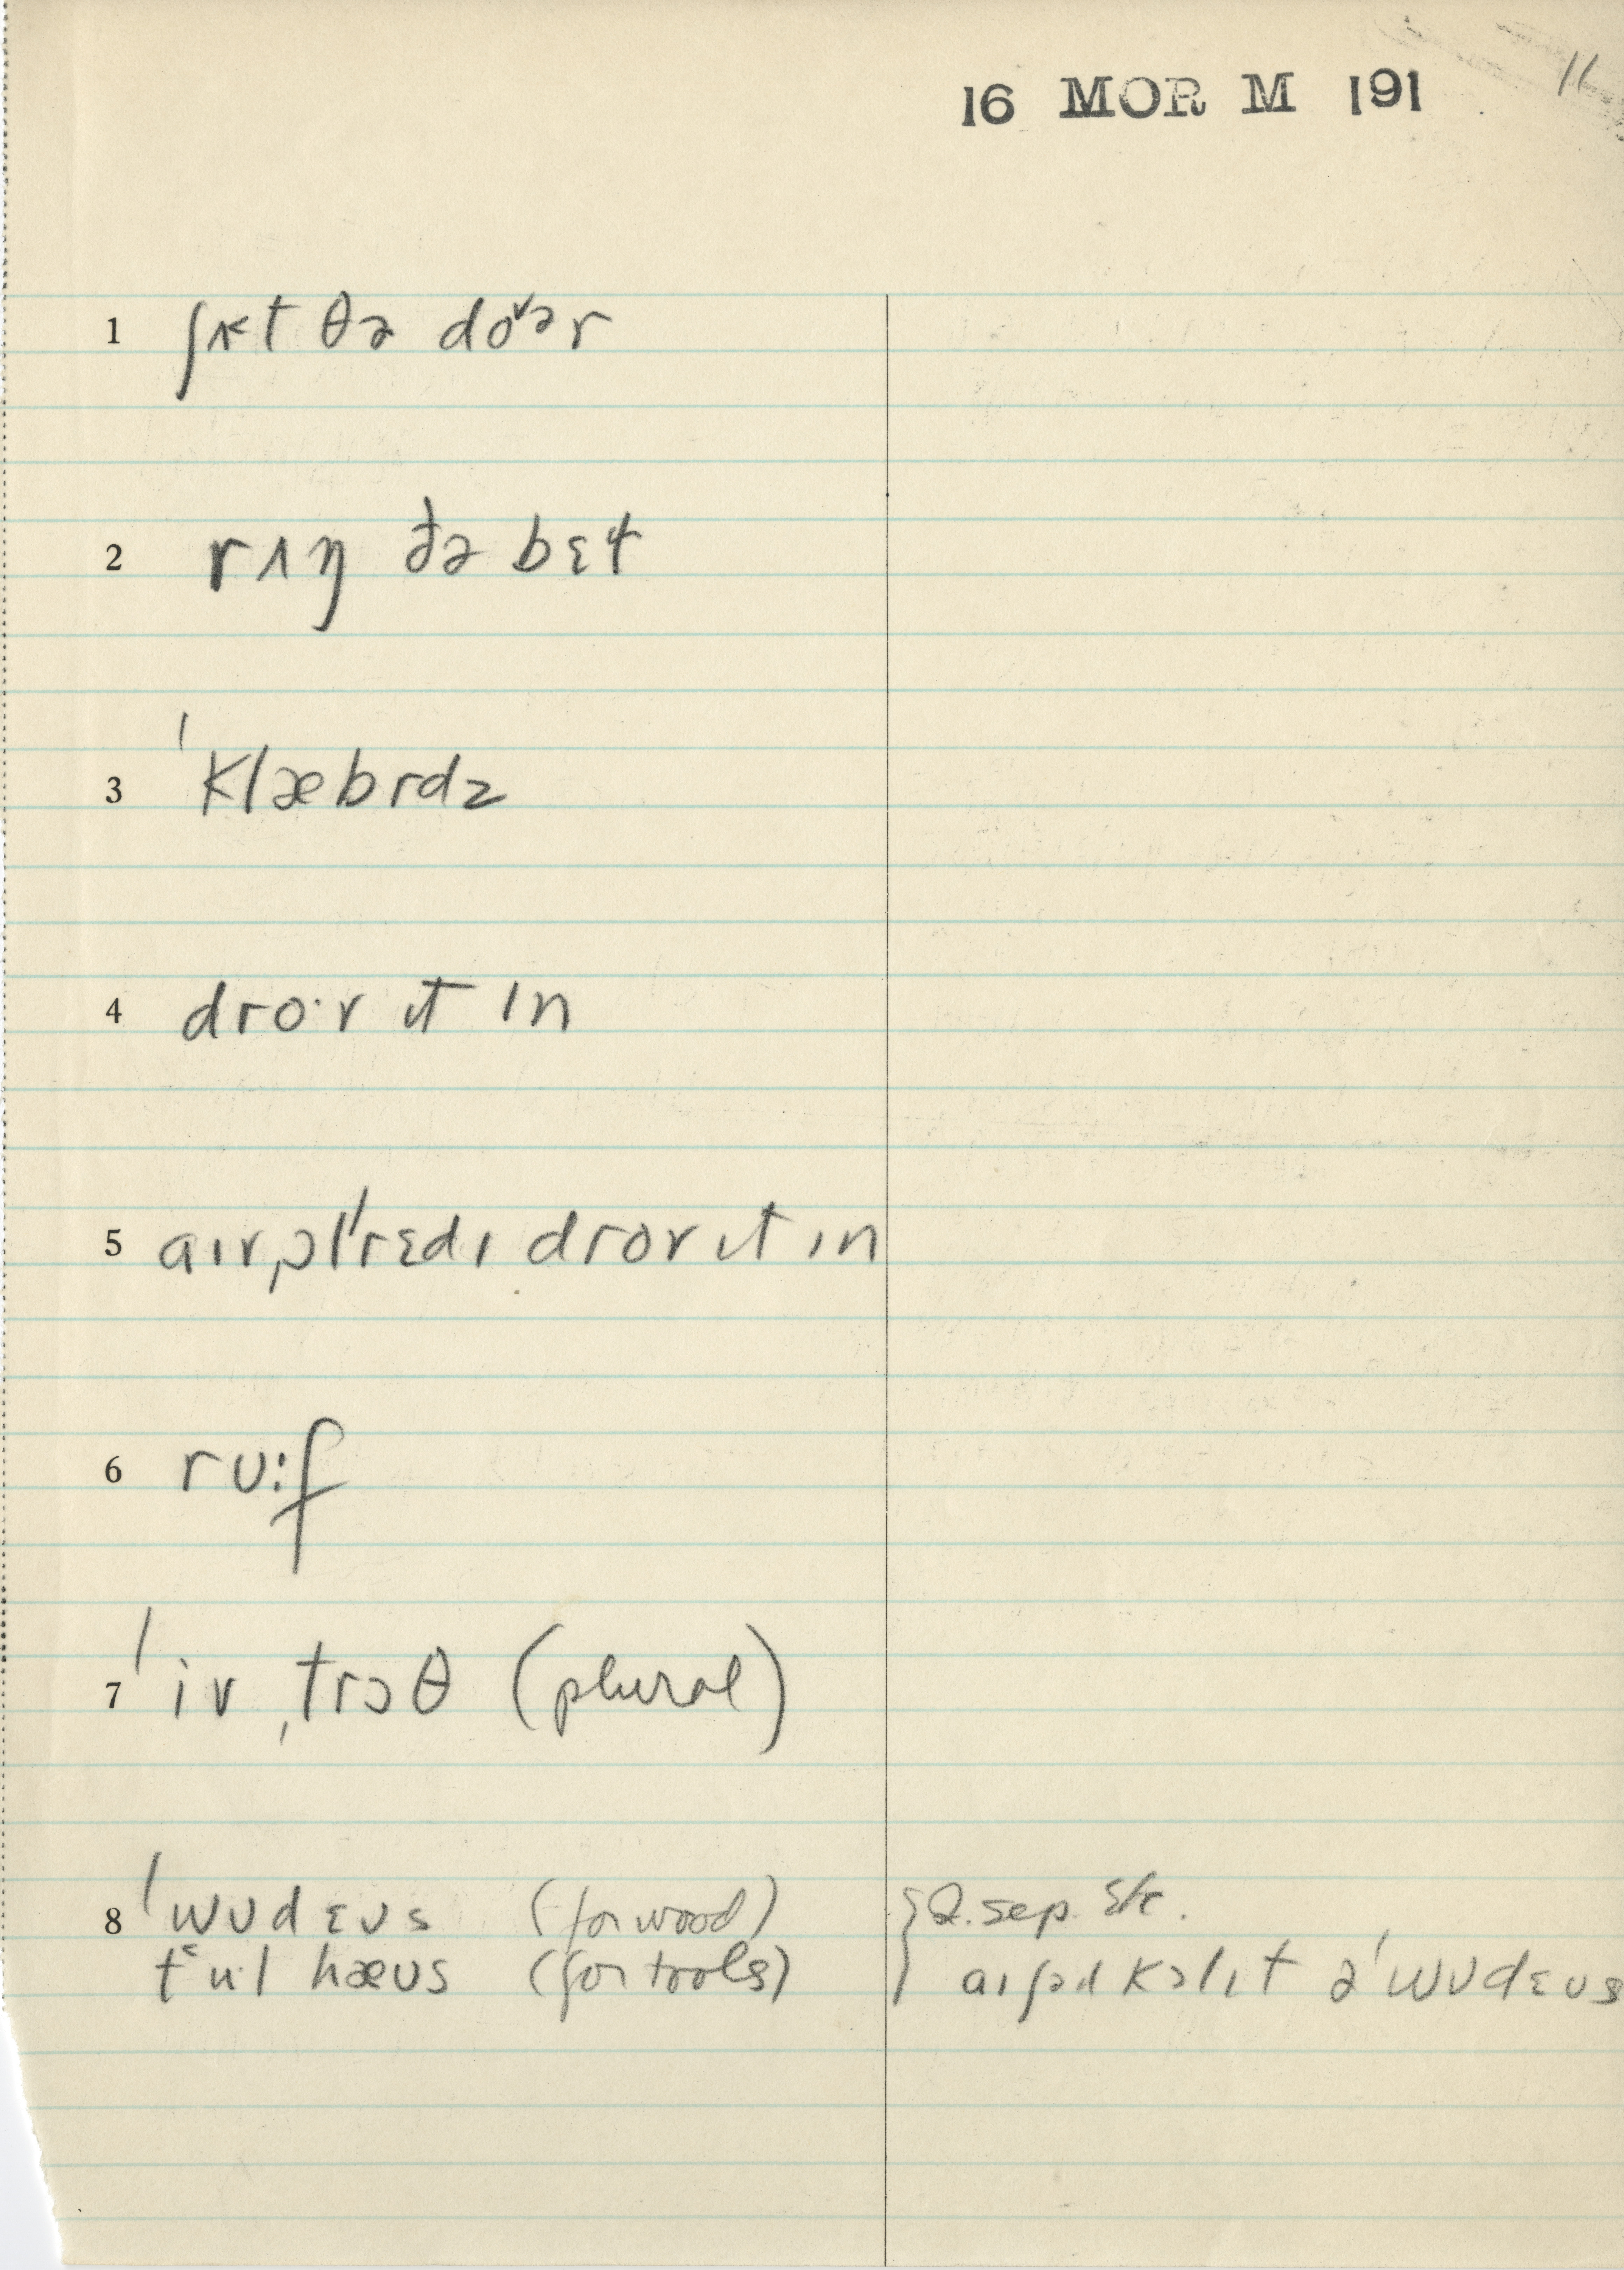 16 MOR M 191 11
1 ʃʌ˂t θə do˅ər
2 rɪŋ ðə bɛɫ
3 ˈklæbrdz
4 dro·r ɪt ɪn
5 aɪr,ɔlˈrɛdɪ dror ɪt ɪn
6 rʊ:f
7 ˈiv ˌtrɔθ (plural)
8 ˈwʊdɛʊs (for wood) } 2. sep. str.
t˂u·l hæʊs (for tools) } aɪʃəd kɔlɪt əˈwʊdɛʊs